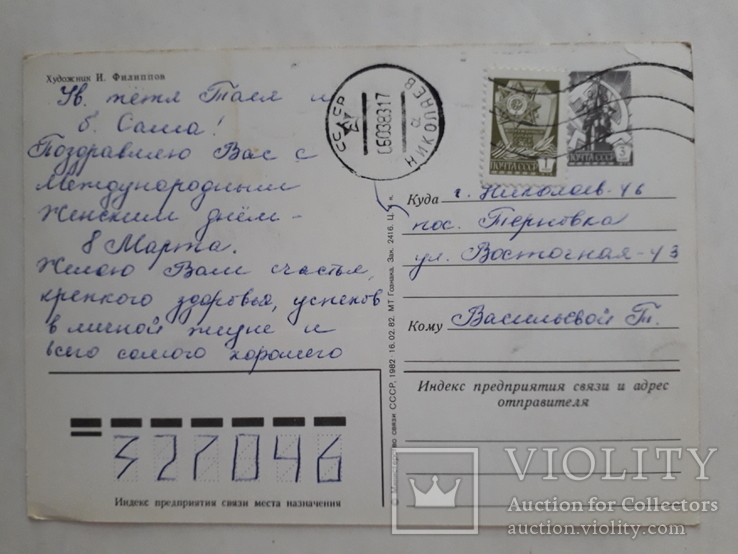 Художник И. Филиппов
Ув. тётя Тася и
б. Саша!
Поздравляю Вас с
Международным
Женским днём -
8 Марта.
Желаю Вам счастья,
крепкого здоровья, успехов
в личной жизни и
всего самого хорошего
СССР
06038317
НИКОЛАЕВ
ПОЧТА СССР 1
ПОЧТА СССР 3
Куда г. Николаев-46
пос. Терновка
ул. Восточная-43
Кому Васильевой Т.
Индекс предприятия связи и адрес
отправителя
© Министерство связи СССР, 1982 16.02.82. МТ Гознака. Зак. 2416. Ц. к.
327046
Индекс предприятия связи места назначения
VIOLITY
Auction for Collectors
auction.violity.com